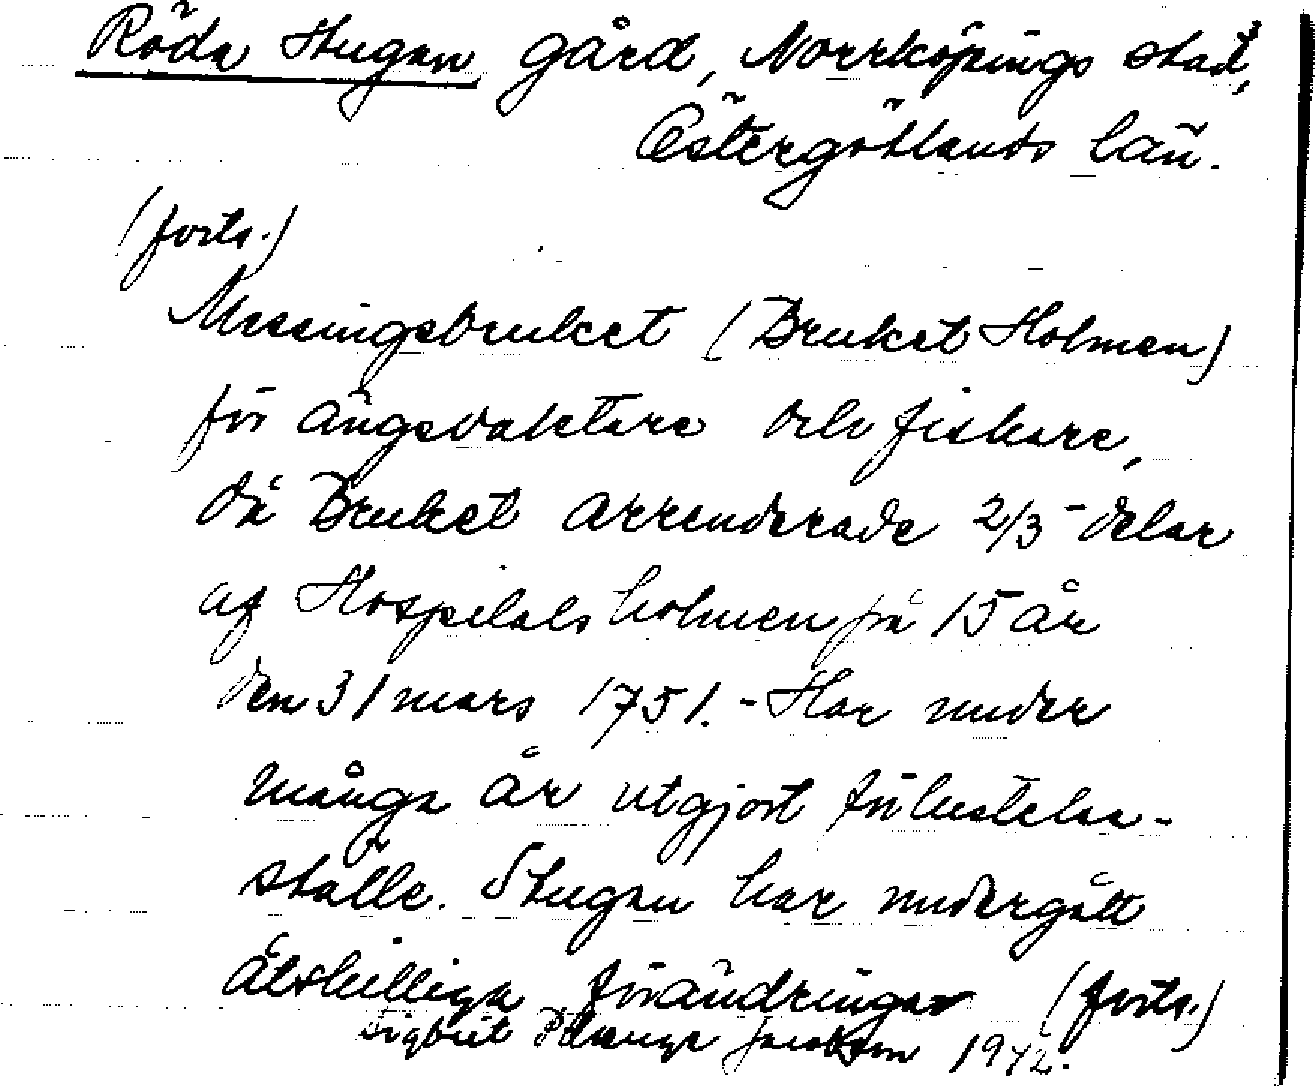 Röda Stugan gård, Norrköpings stad,
Östergötlands län.
(forts.)
Messingsbruket (Bruket Holmen)
för ängsvaktare och fiskare,
då Bruket arrenderade 2/3-delar
af Hospitalsholmen på 15 år
den 31 mars 1751. - Har under
många år utgjort förlustelse-
ställe. Stugan har undergått
åtskilliga förändringar (forts.)
Sigbrit Plænge Jacobson 1972.